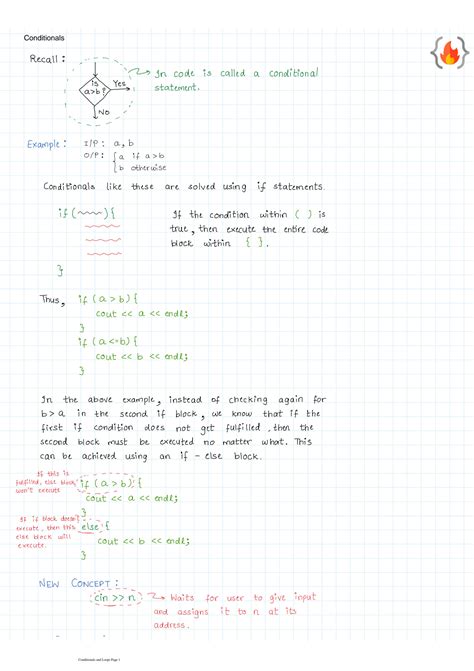 Conditionals
Recall :
is
a>b ?
Yes
No
In code is called a conditional
statement.
Example : I/P : a, b
O/P : { a if a>b
b otherwise
Conditionals like these are solved using if statements.
if ( ) {
}
If the condition within ( ) is
true, then execute the entire code
block within { }.
Thus, if (a > b) {
cout << a << endl;
}
if (a <= b) {
cout << b << endl;
}
In the above example, instead of checking again for
b > a in the second if block, we know that if the
first if condition does not get fulfilled, then the
second block must be executed no matter what. This
can be achieved using an if - else block.
If this is
fulfilled, else block
won't execute
if (a > b) {
cout << a << endl;
}
If if block doesn't
execute, then this
else block will
execute.
else {
cout << b << endl;
}
NEW CONCEPT :
cin >> n
Waits for user to give input
and assigns it to n at its
address.
Conditionals and Loops Page 1